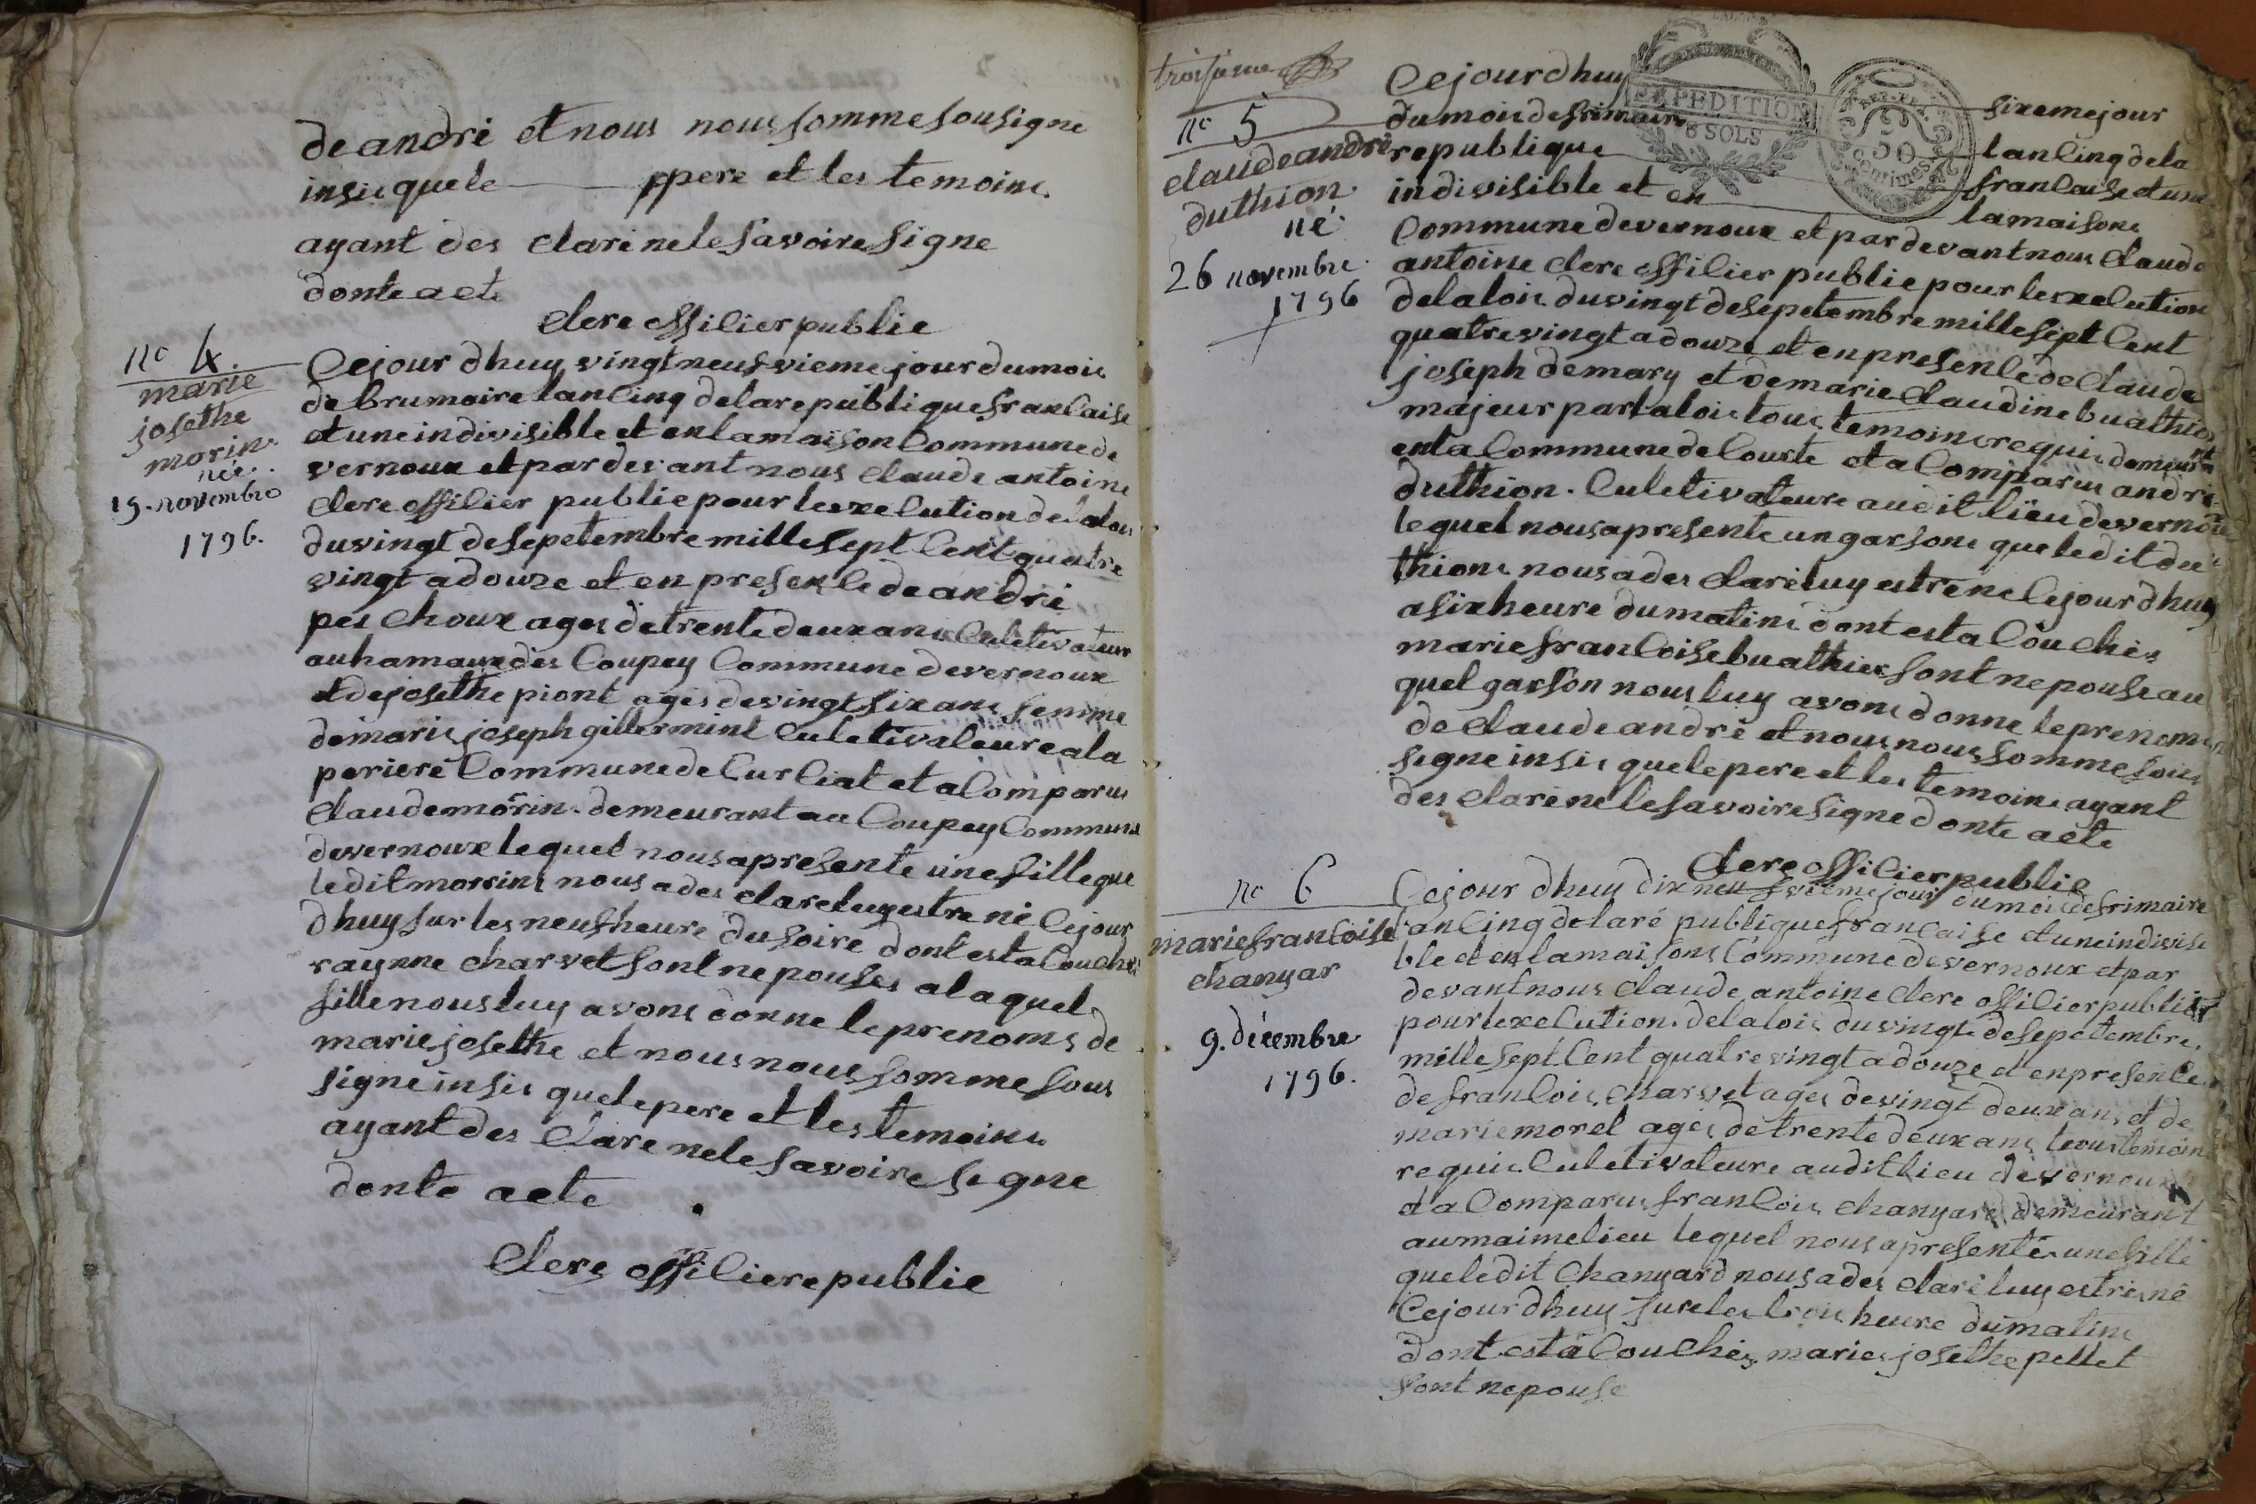 de andré et nous nous somme sousigne
insis que le ppere et les temoins
ayant des clari ne le savoire signe
donte acte
Clerc offilier publie
nº 4
marie
josethe
morin
née
19. novembre
1796.
Cejour dhuy vingt neufvieme jour du mois
de brumaire lan cinq de la republique francaise
et une indivisible et en la maison Commune de
vernoux et par devant nous claude antoine
clerc offilier publie pour lexcelution de la lois
du vingt de sepetembre mille sept Cent quatre
vingt a douze et en presenle de andré
pes choux ages de trente deux ans Culetivateur
au hamaux des Coupey Commune de vernoux
et de josethe piont agés de vingt six ans femme
de marie joseph gillermint Culetivateure a la
periere Commune de Curliat et a Comparus
Claude morin. demeurant au Coupey Commune
de vernoux lequel nous a presente une fille que
le dit morrins nous a des clare luy estre né Cejour
dhuy sur les neuf heure du soire dont est a Couchés
raynne charvet sont ne pouses a la quel
fille nous luy avons donne le prenoms de
marie josethe et nous nous somme sous
signe insis que le pere et les temoins
ayant des clare ne le savoire signe
donte acte
Clerc offiliere publie
troisieme
nº 5
claude andré
duthion
né
26 novembre
1796
EXPEDITION
8 SOLS
50
Centimes
Cejour dhuy sixeme jour
du mois de frimaire lan cinq de la
republique francaise et une
indivisible et en la maisons
Commune de vernoux et par devant nous claude
antoine clerc offilier publie pour lexcelution
de la lois du vingt de sepetembre mille sept Cent
quatre vingt a douze et en presenlé de Claude
joseph de mary et de marie claudine buathier
majeur par la lois tous temoins requis demeurant
en la Commune de Courte et a Comparus andré
duthion. Culetivateure audit liëu de vernoux
lequel nous a presente un garsons que le dit du
thions nous a des claré luy estre né Cejour dhuy
a six heure du matins dont est a Couchés
marie francoise buathier sont ne pouse au
quel garson nous luy avons donne le prenoms
de claude andré et nous nous somme sous
signe insis que le pere et les temoins ayant
des claré ne le savoire signe donte acte
Clerc offilier publie
nº 6
marie francoise
chanyar
9. décembre
1796.
Cejour dhuy dix neufvieme jour du mois de frimaire
l'an cinq de la ré publique francaise et une indivisi
ble et en la maisons Commune de vernoux et par
devant nous claude antoine clerc offilier publier
pour lexcelution. de la lois du vingt de sepetembre
mille sept Cent quatre vingt a douze et en presenle
de francois charvet ages de vingt deux ans et de
marie morel agés de trente deux ans tous temoin
requis Culetivateure audit lieu de vernoux
et a Comparus francois chanyard demeurant
au maime lieu lequel nous a presentér une fille
que le dit chanyard nous a des claré luy estre né
Cejour dhuy sur les trois heure du matins
dont est a Couchés marie josethe pellet
sont ne pouse